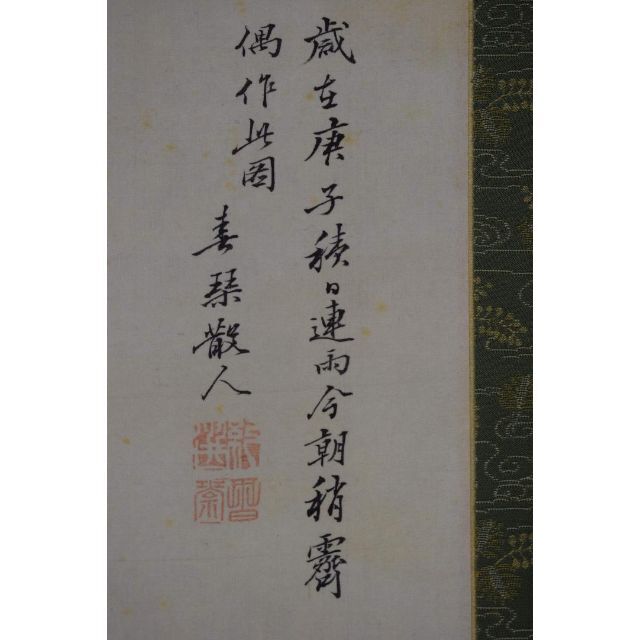 歳在庚子積日連雨今朝稍霽
偶作此図
春琴散人